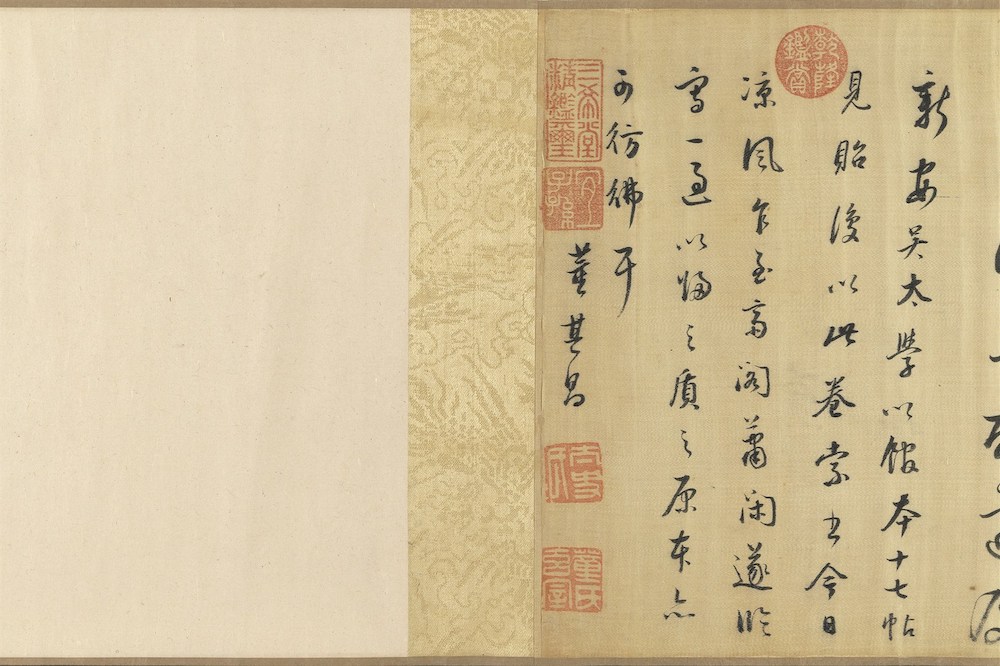 新安吳太學以館本十七帖
見貽復以此卷索書今日
凉風乍至高閣蕭閑遂臨
寫一過以歸之質之原本亦
可彷彿耳
董其昌
乾隆鑑賞
三希堂精鑑璽
宜子孫
太史氏
董氏玄宰